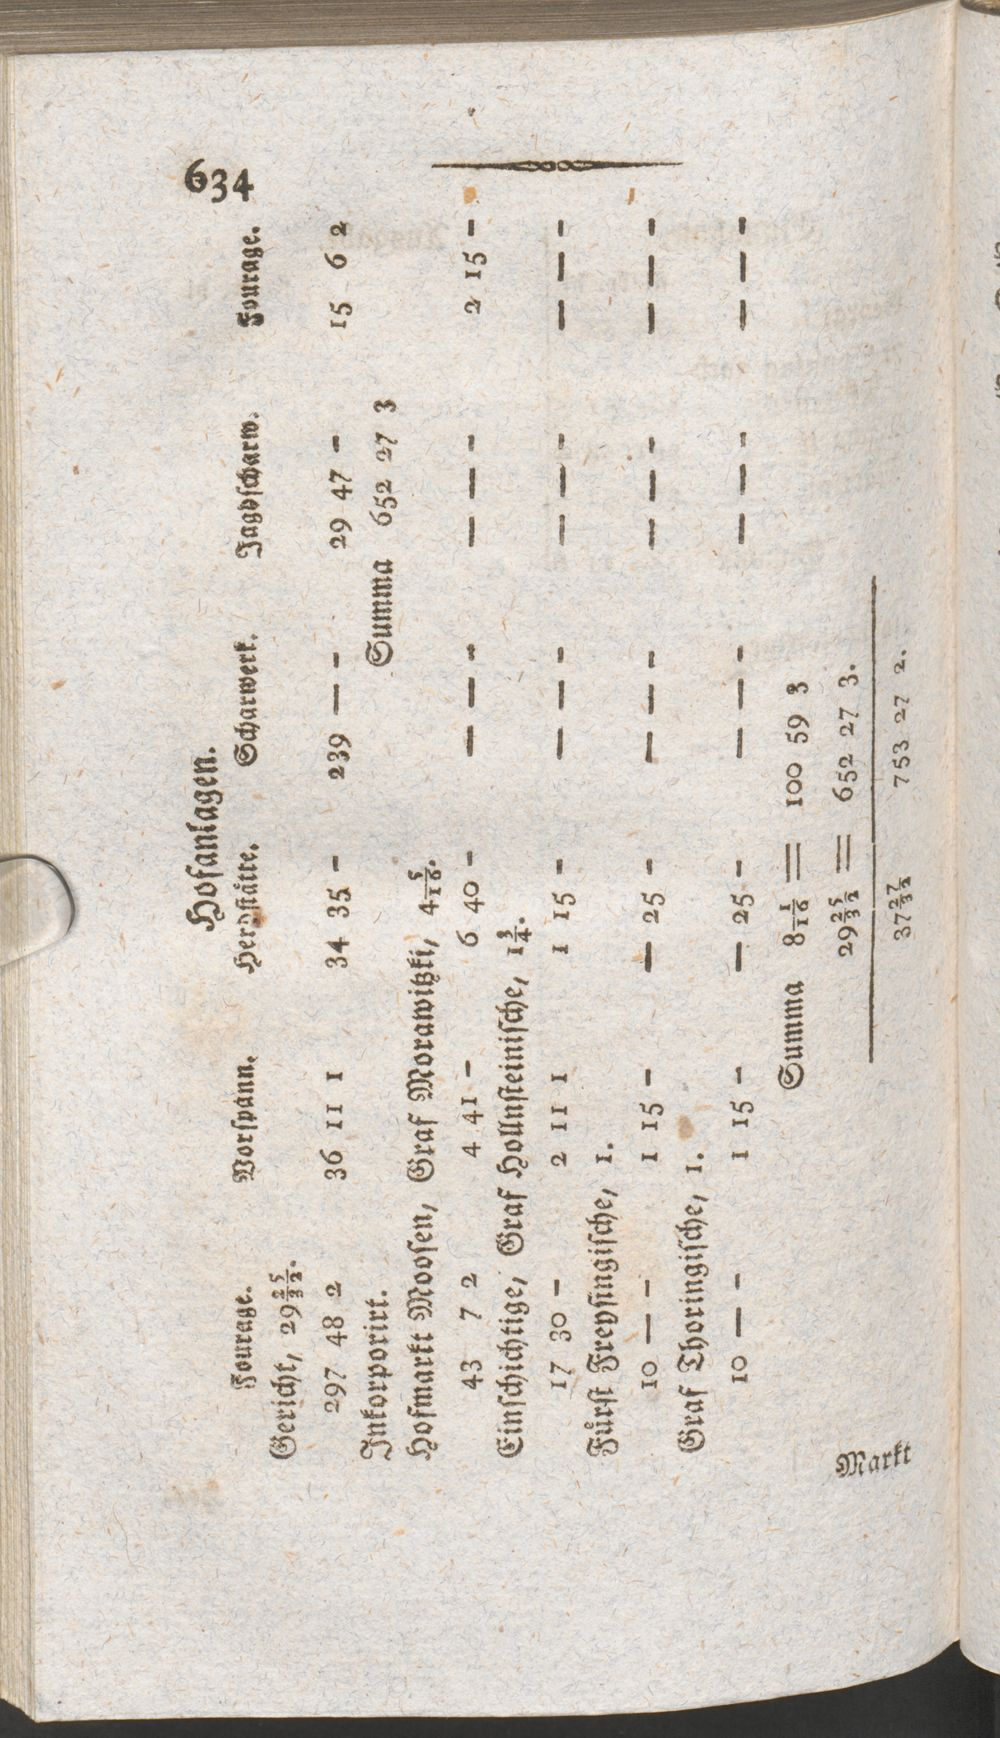 634
Hofanlagen.
Fourage. Vorspann. Herdstätte. Scharwerk. Jagdscharw. Fourage.
Gericht, 29 25/32.
297 48 2 36 11 1 34 35 - 239 — - 29 47 - 15 6 2
Summa 652 27 3
Inkorporirt.
Hofmarkt Moosen, Graf Morawitzki, 4 5/16.
43 7 2 4 41 - 6 40 - — — - — — - 2 15 -
Einschichtige, Graf Hollnsteinische, 1 3/4.
17 30 - 2 11 1 1 15 - — — - — — - — — -
Fürst Freysingische, 1.
10 — - 1 15 - — 25 - — — - — — - — — -
Graf Thoringische, 1.
10 — - 1 15 - — 25 - — — - — — - — — -
Summa 8 1/16 = 100 59 3
29 25/32 = 652 27 3.
37 27/32 753 27 2.
Markt